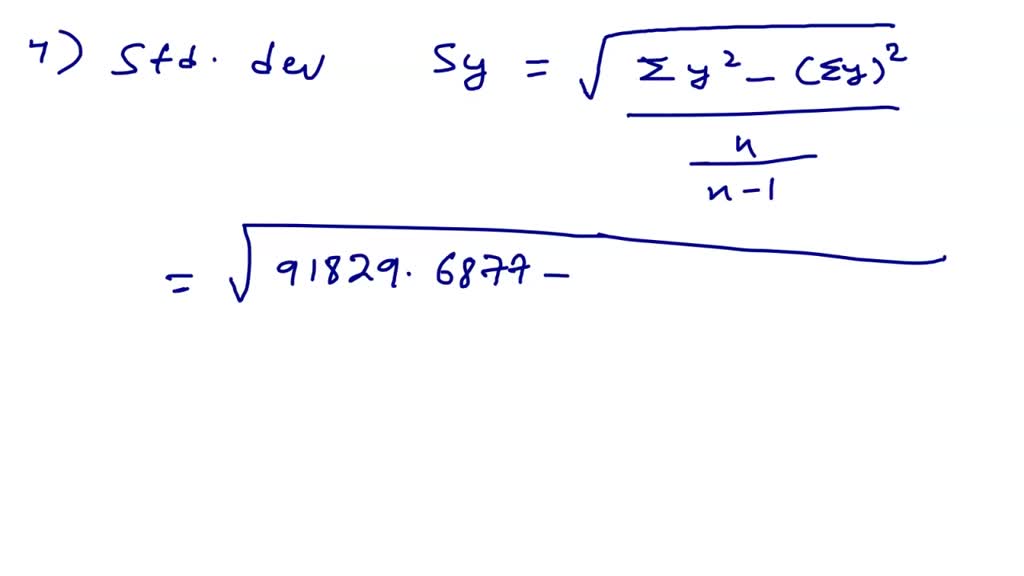 4) Std. dev Sy = √ Σy² - (Σy)²
n
n-1
= √ 91829.6877 -